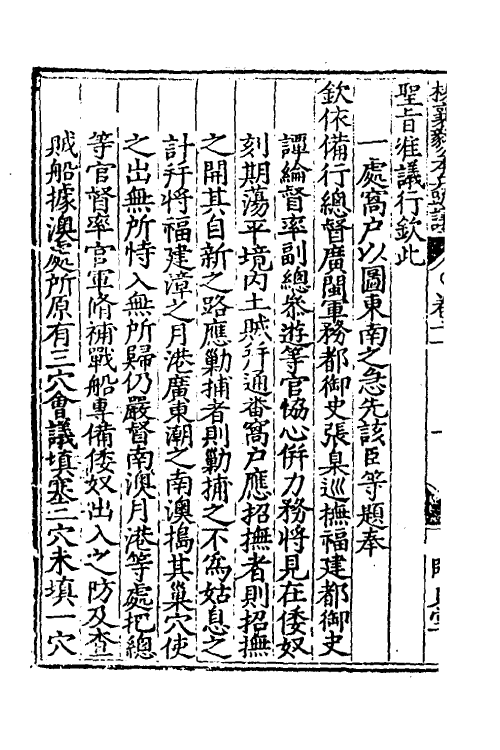 聖旨准議行欽此
一處窩户以圖東南之急先該臣等題奉
欽依備行總督廣閩軍務都御史張臬巡撫福建都御史
譚綸督率副總叅遊等官協心併力務將見在倭奴
刻期蕩平境内土賊并通畨窩户應招撫者則招撫
之開其自新之路應勦捕者則勦捕之不爲姑息之
計并將福建漳之月港廣東潮之南澳搗其巢穴使
之出無所恃入無所歸仍嚴督南澳月港等處把總
等官督率官軍脩補戰船專備倭奴出入之防及查
賊船據澳處所原有三穴會議填塞二穴未填一穴